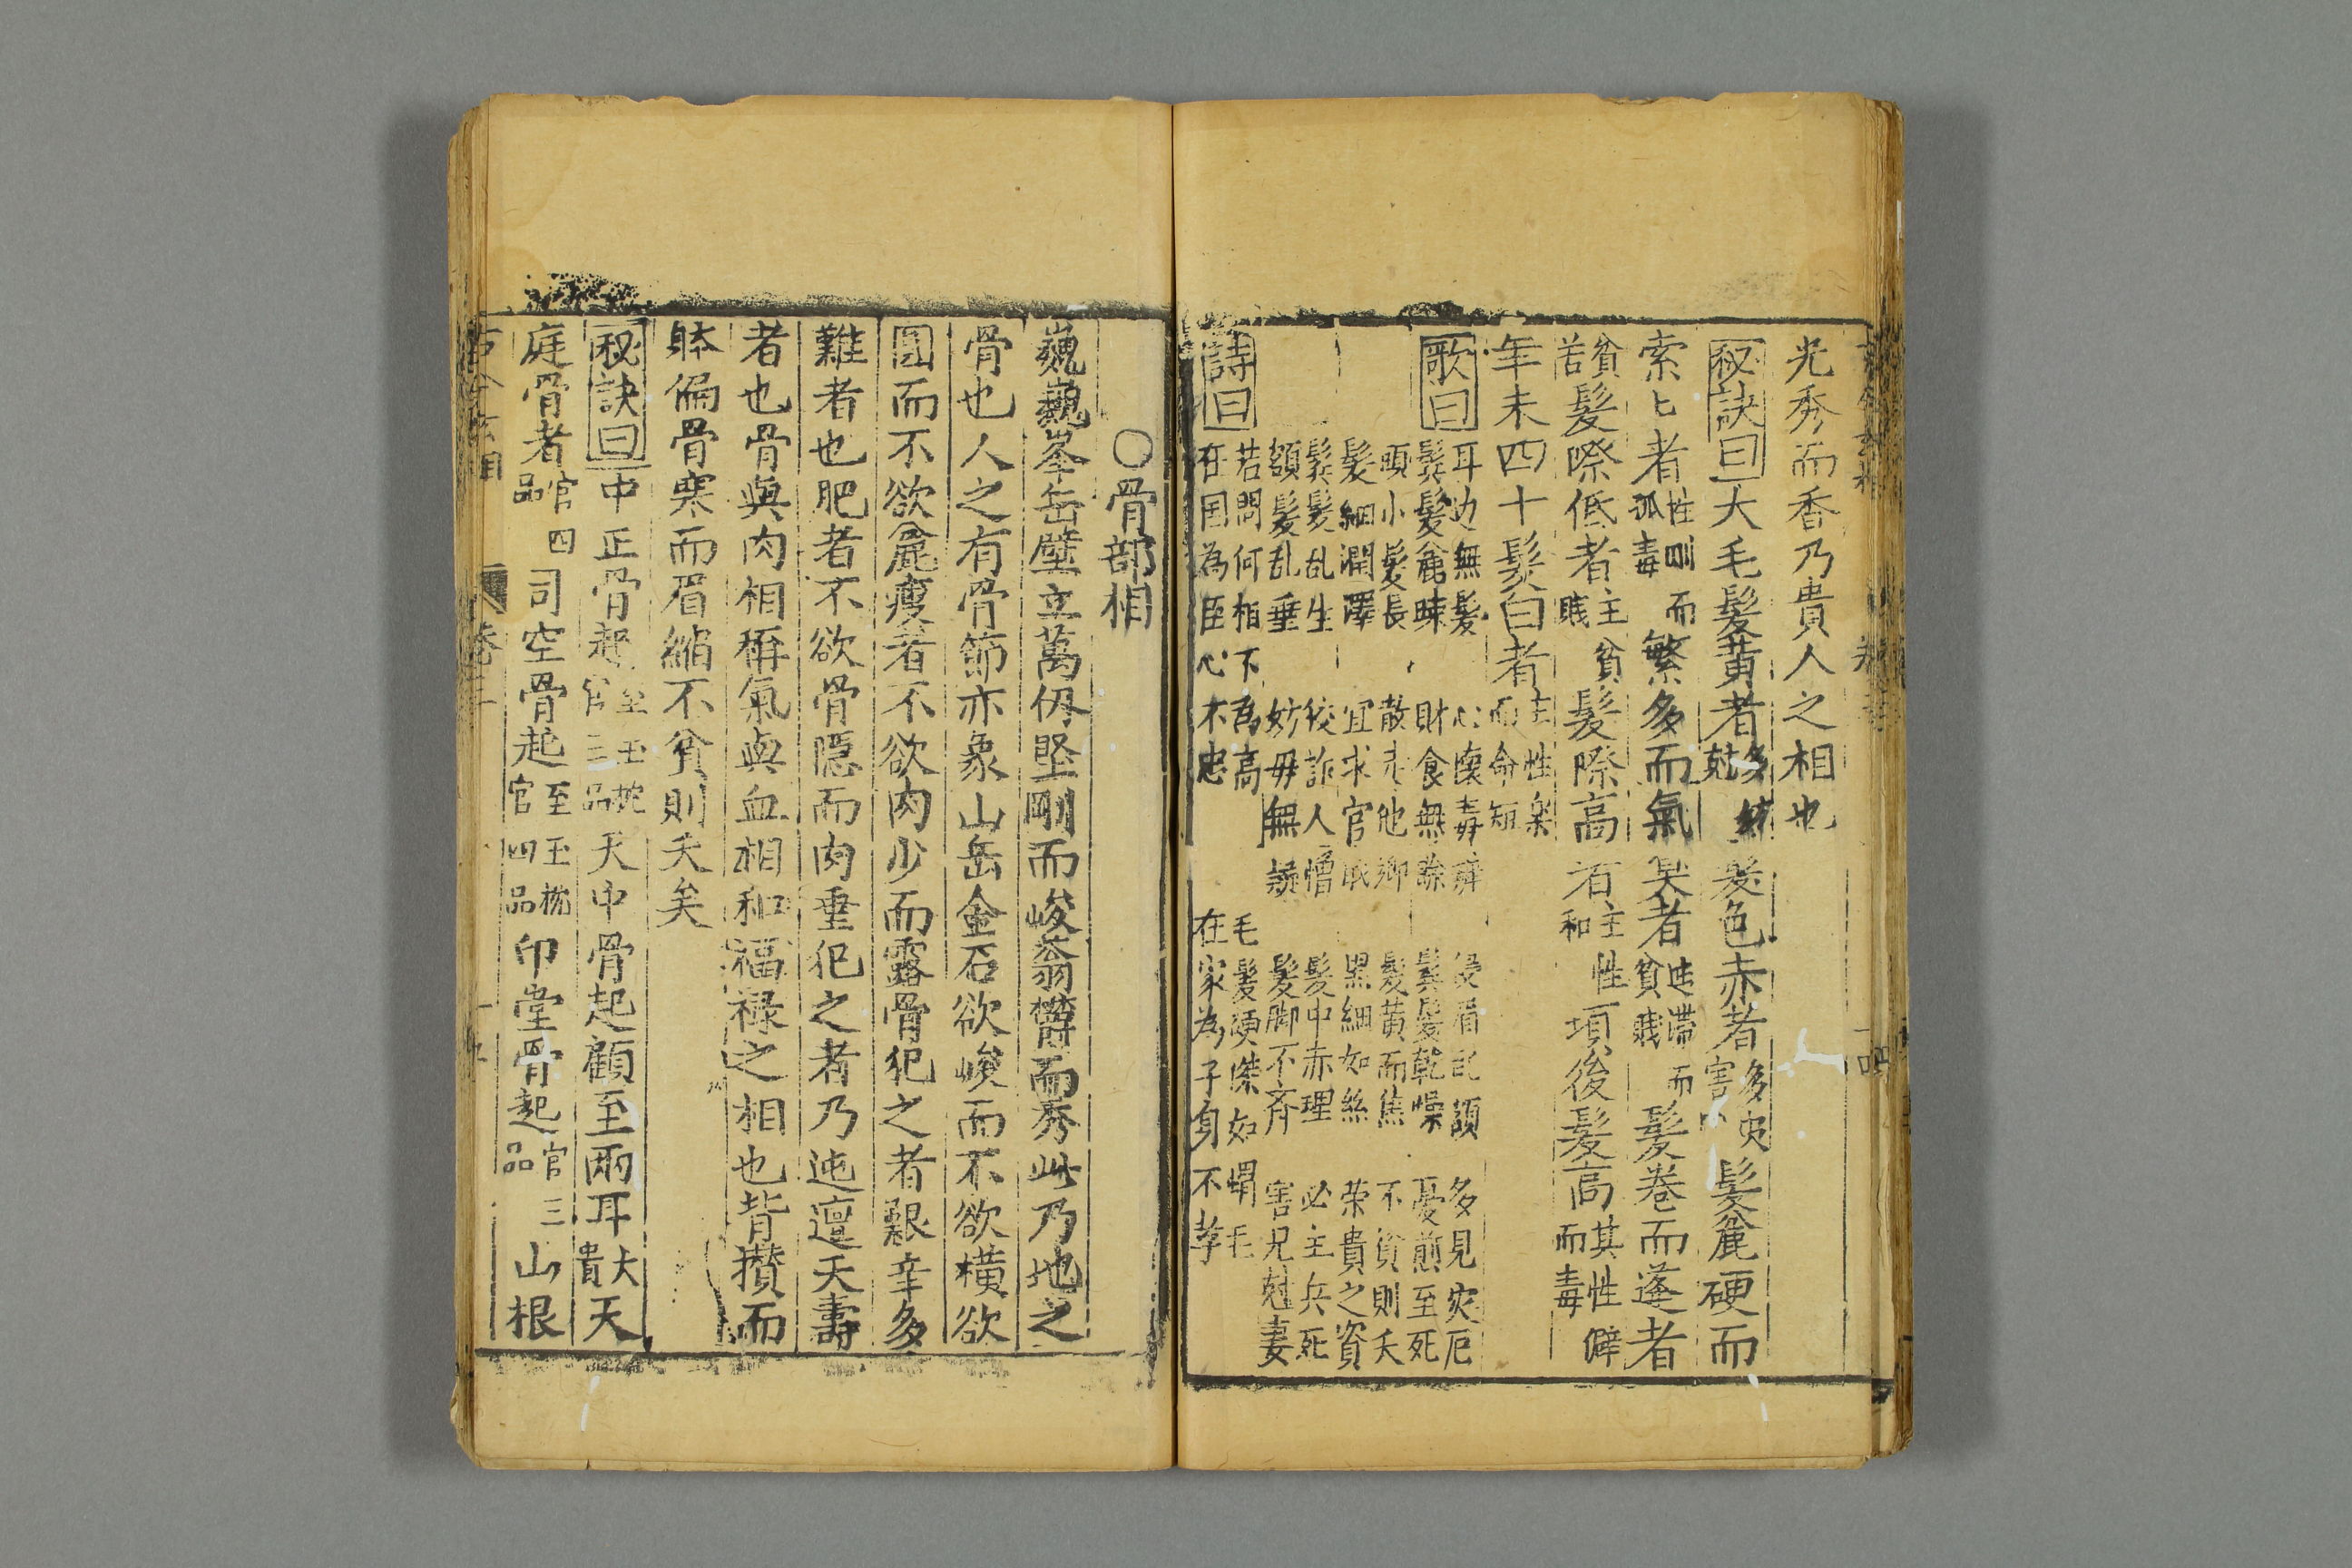 光秀而香乃貴人之相也
秘訣曰大毛髮黃者多妨尅髮色赤者多灾害髮麄硬而
索匕者性剛而孤毒繁多而氣臭者迍滯而貧賤髮卷而蓬者
貧苦髮際低者主貧賤髮際高者主性和項後髮高其性僻而毒
年未四十髮白者主性樂而命短
歌曰
耳边無髮 心懷毒 侵眉 額 多見灾厄
鬂髮麄疎 財食無餘 鬂髮乾燥 憂煎至死
頭小髮長 散走他鄉 髮黃而焦 不貧則夭
髮細潤澤 宜求官 黑細如絲 荣貴之資
鬂髮乱生 狡詐人憎 髮中赤理 必主兵死
額髮乱垂 妨母無疑 髮脚不齊 害兄尅妻
詩曰
若問何相下為高 毛髮 如蝟毛
在国為臣心不忠 在家為子身不孝
○骨部相
巍巍峯岳壁立萬仭堅剛而峻蓊欎而秀此乃地之
骨也人之有骨節亦象山岳金石欲峻而不欲橫欲
圓而不欲麄瘦者不欲肉少而露骨犯之者艱辛多
難者也肥者不欲骨隱而肉垂犯之者乃迍邅夭壽
者也骨與肉相稱氣與血相和福禄之相也背攢而
躰偏骨寒而眉縮不貧則夭矣
秘訣曰中正骨起至玉枕官三品天中骨起顧至兩耳大貴天
庭骨者官四品司空骨起至玉枕官四品印堂骨起官三品山根
古今玄相 卷三